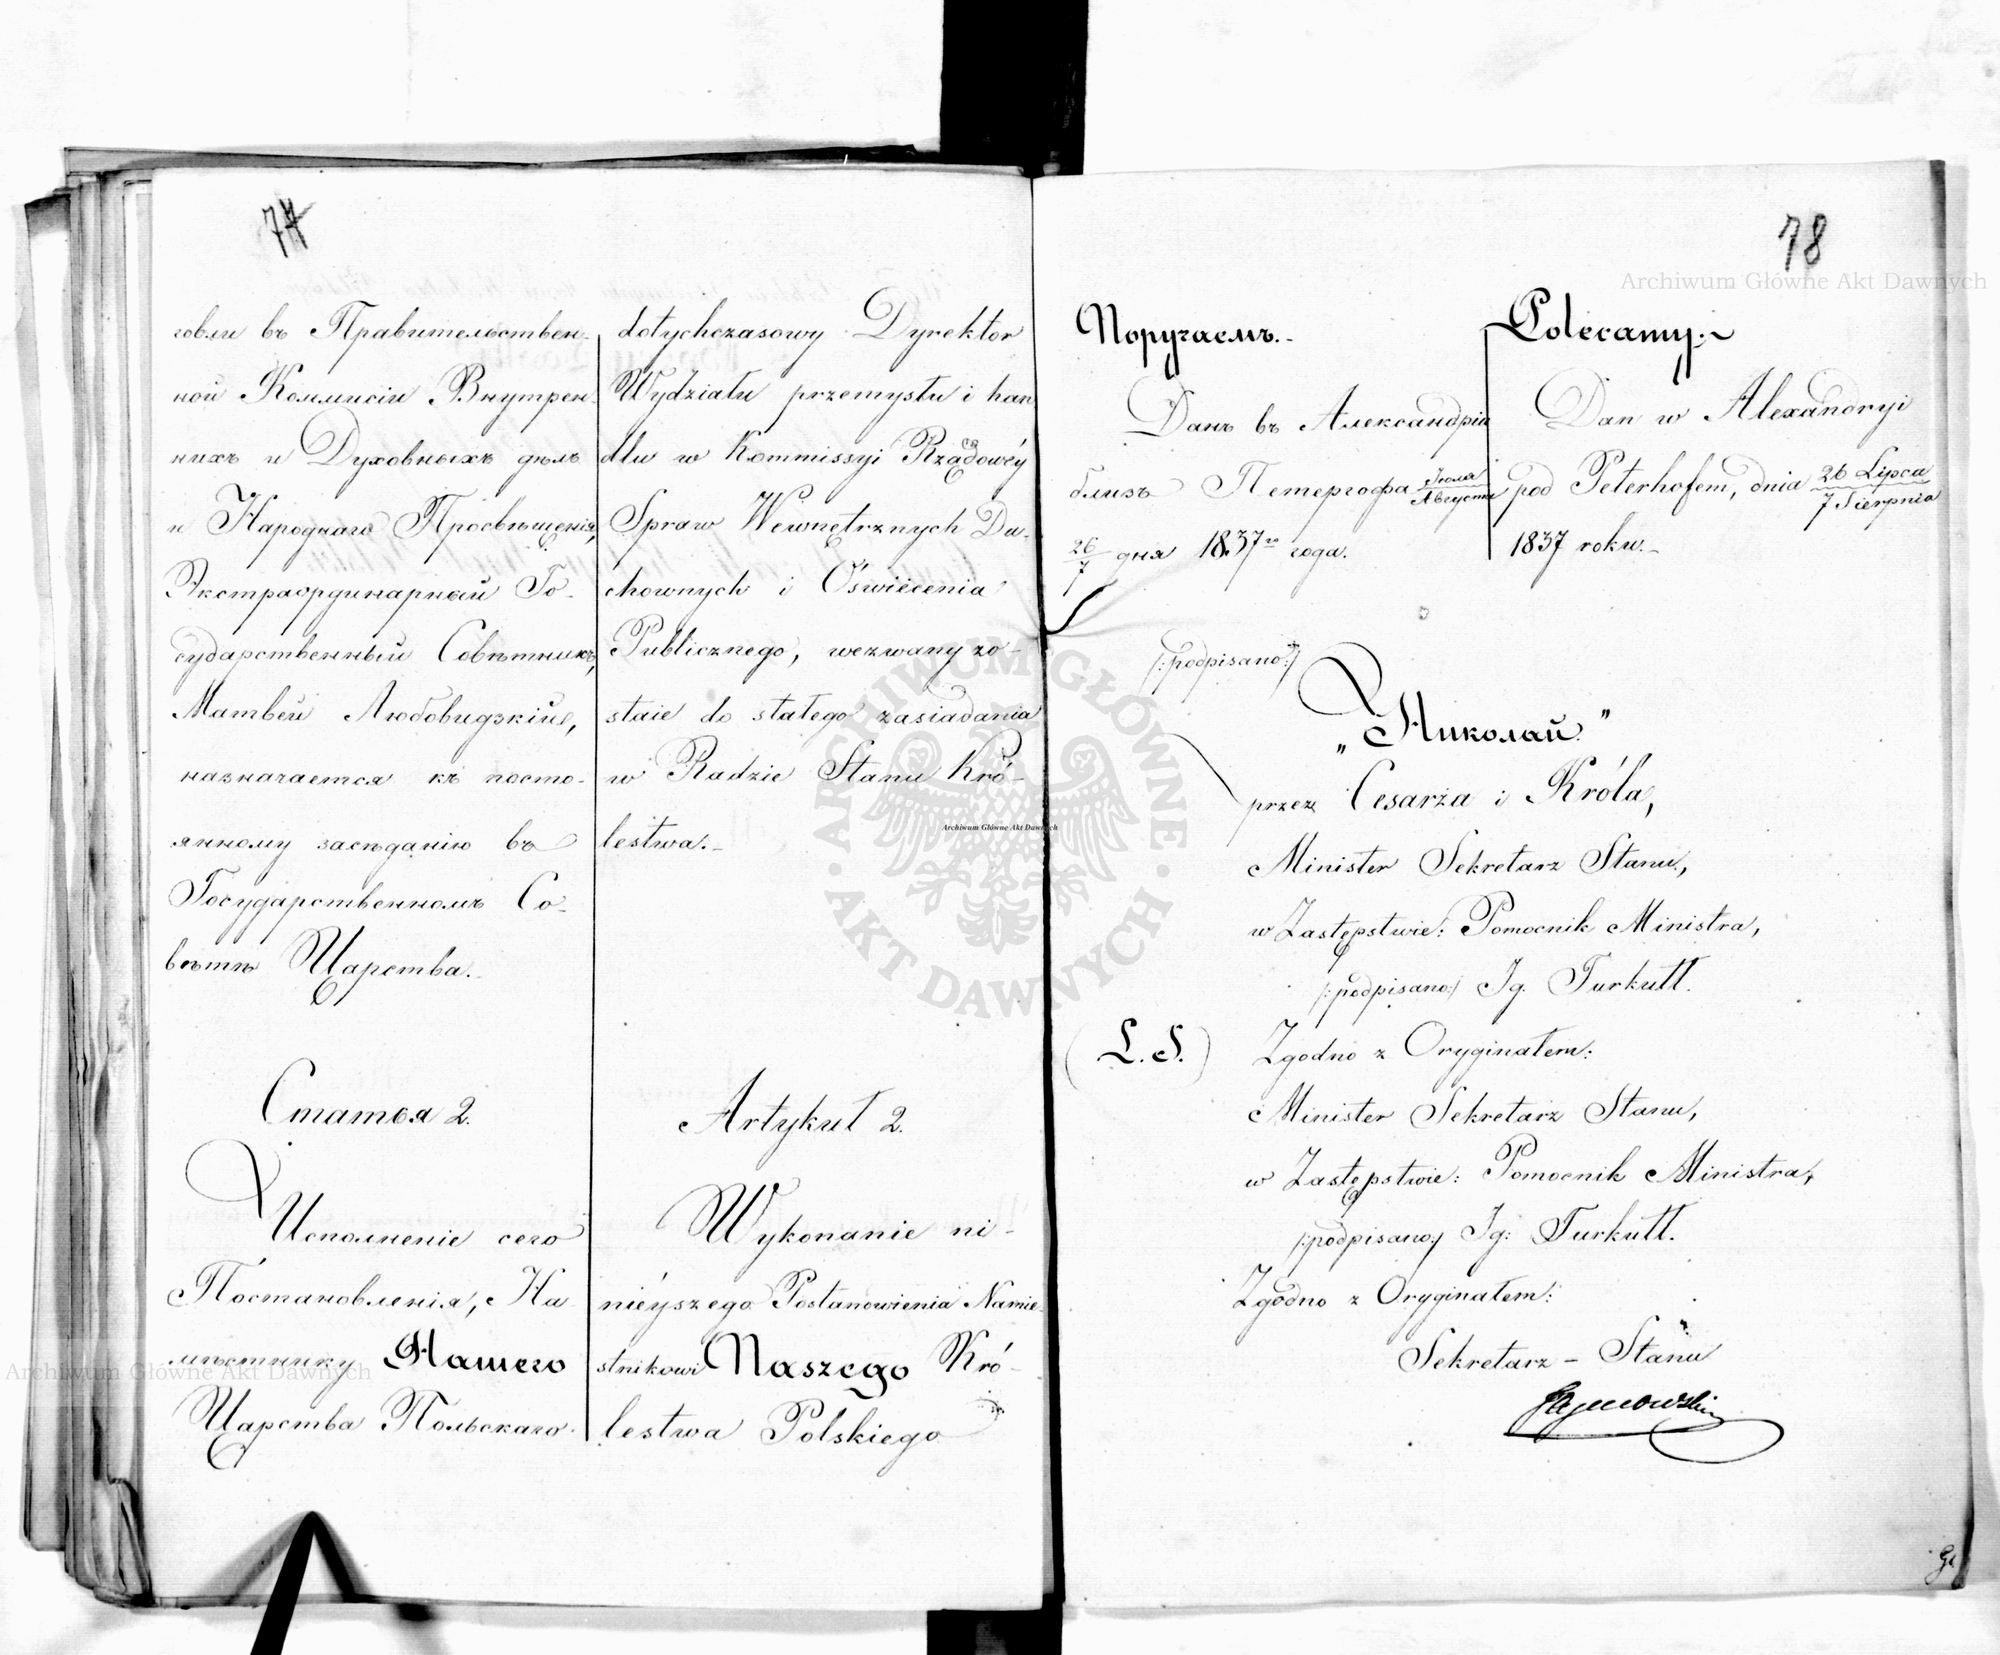 74
говли въ Правительствен-
ной Коммисіи Внутрен-
нихъ и Духовныхъ дѣлъ
и Народнаго Просвѣщенія,
Экстраординарный Го-
сударственный Совѣтникъ,
Матвей Любовидзкій,
назначается къ посто-
янному засѣданію въ
Государственномъ Со-
вѣтѣ Царства.
Статья 2.
Исполненіе сего
Постановленія, На-
мѣстнику Нашего
Царства Польскаго
dotychczasowy Dyrektor
Wydziału przemysłu i han
dlu w Kommissyi Rządowéy
Spraw Wewnętrznych Du-
chownych i Oświécenia
Publicznego, wezwany zo-
staie do stałego zasiadania
w Radzie Stanu Kró-
lestwa.
Artykuł 2.
Wykonanie ni-
niéyszego Postanowienia Namie-
stnikowi Naszego Kró-
lestwa Polskiego
78
Поручаемъ.
Данъ въ Александріи
близъ Петергофа Іюля/Августа
26/7 дня 1837го года.
Polecamy.
Dan w Alexandryi
pod Peterhofem, dnia 26 Lipca/7 Sierpnia
1837 roku.
/:podpisano:/
„Николай"
przez Cesarza i Króla,
Minister Sekretarz Stanu,
w Zastępstwie: Pomocnik Ministra,
/:podpisano:/ Ig. Turkułł.
(L. S.) Zgodno z Oryginałem:
Minister Sekretarz Stanu,
w Zastępstwie: Pomocnik Ministra,
/:podpisano:/ Ig: Turkułł.
Zgodno z Oryginałem:
Sekretarz - Stanu
Archiwum Główne Akt Dawnych
Archiwum Główne Akt Dawnych
Archiwum Główne Akt Dawnych
ARCHIWUM GŁÓWNE · AKT DAWNYCH ·